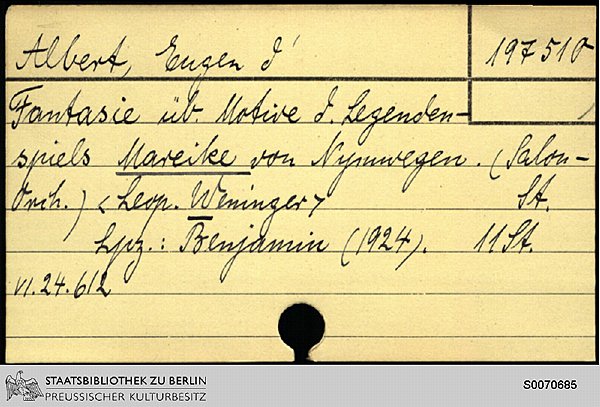 Albert, Eugen d'
197510
Fantasie üb. Motive d. Legenden-
spiels Mareike von Nymwegen. (Salon-
Orch.) <Leop. Weninger> St.
Lpz.: Benjamin (1924). 11 St.
VI.24.612
STAATSBIBLIOTHEK ZU BERLIN
PREUSSISCHER KULTURBESITZ
S0070685